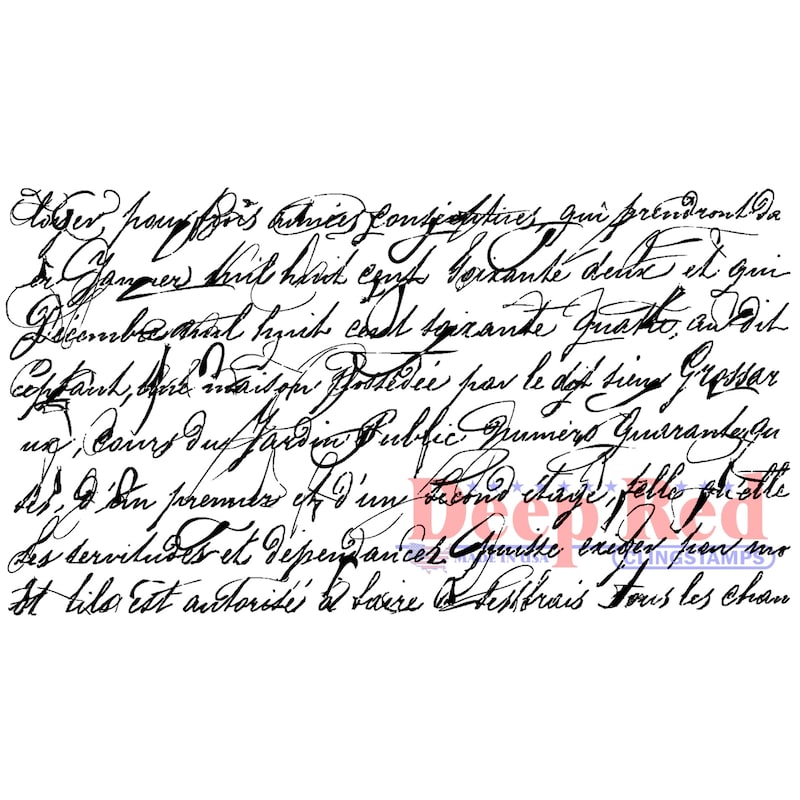 pour trois années consécutives, qui prendront du
er Janvier mil huit cent soixante deux et qui
Décembre mil huit cent soixante quatre, au dit
une maison possédée par le dit sieur Grossar
ux, Cours du Jardin Public Numéro Quarante qu
d'un premier et d'un second étage, telle qu'elle
Deep Red
Les servitudes et dépendances Quitte exiger par
MADE IN USA
CLINGSTAMPS
est autorisé à faire à ses frais Tous les chan